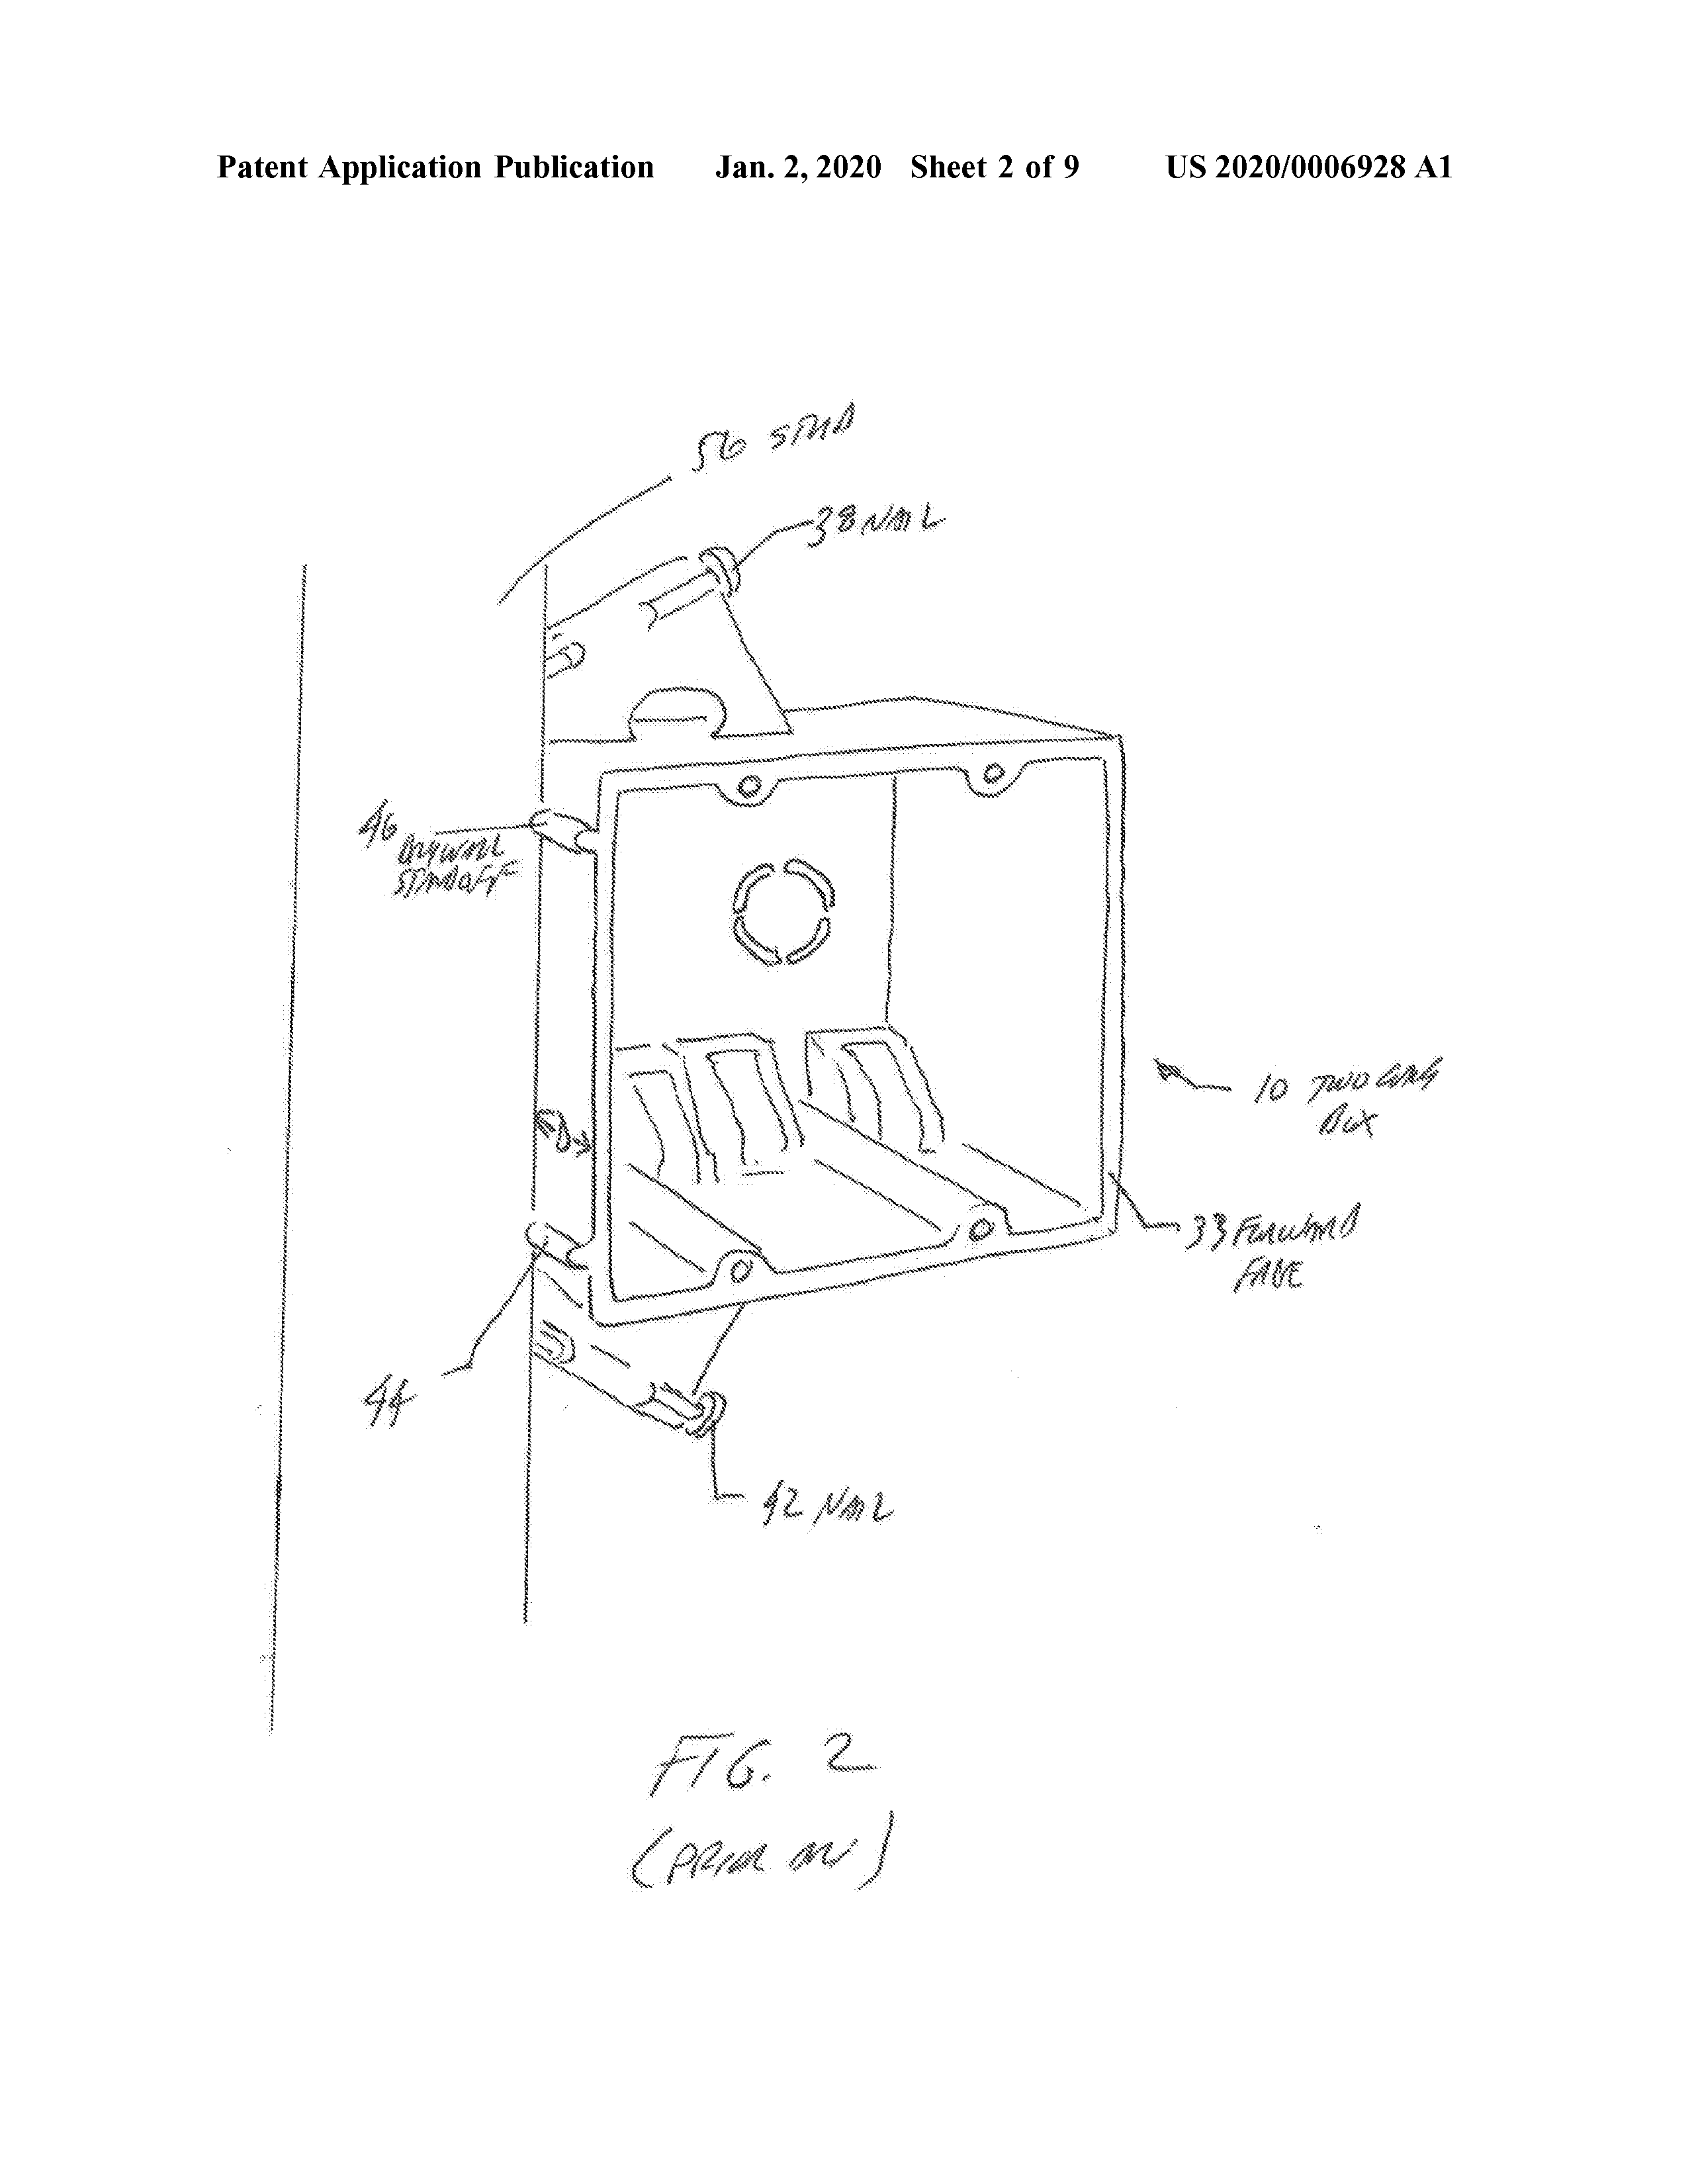 Patent Application Publication Jan. 2, 2020 Sheet 2 of 9 US 2020/0006928 A1
56 STUD
38 NAIL
46 DRYWALL
STANDOFF
10 TWO GANG
BOX
D
33 FORWARD
FACE
44
42 NAIL
FIG. 2
(PRIOR ART)